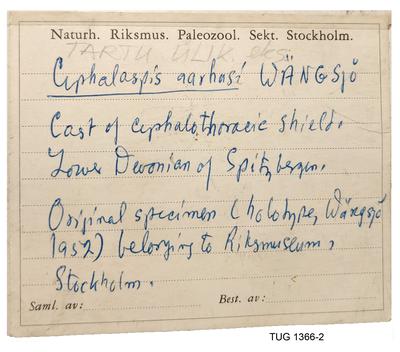 Naturh. Riksmus. Paleozool. Sekt. Stockholm.
TARTU ÜLIK.
Cephalaspis aarhusi WÄNGSJÖ
Cast of cephalothoracic shield.
Lower Devonian of Spitzbergen.
Original specimen (holotype, Wängsjö
1952) belonging to Riksmuseum,
Stockholm.
Saml. av: Best. av:
TUG 1366-2